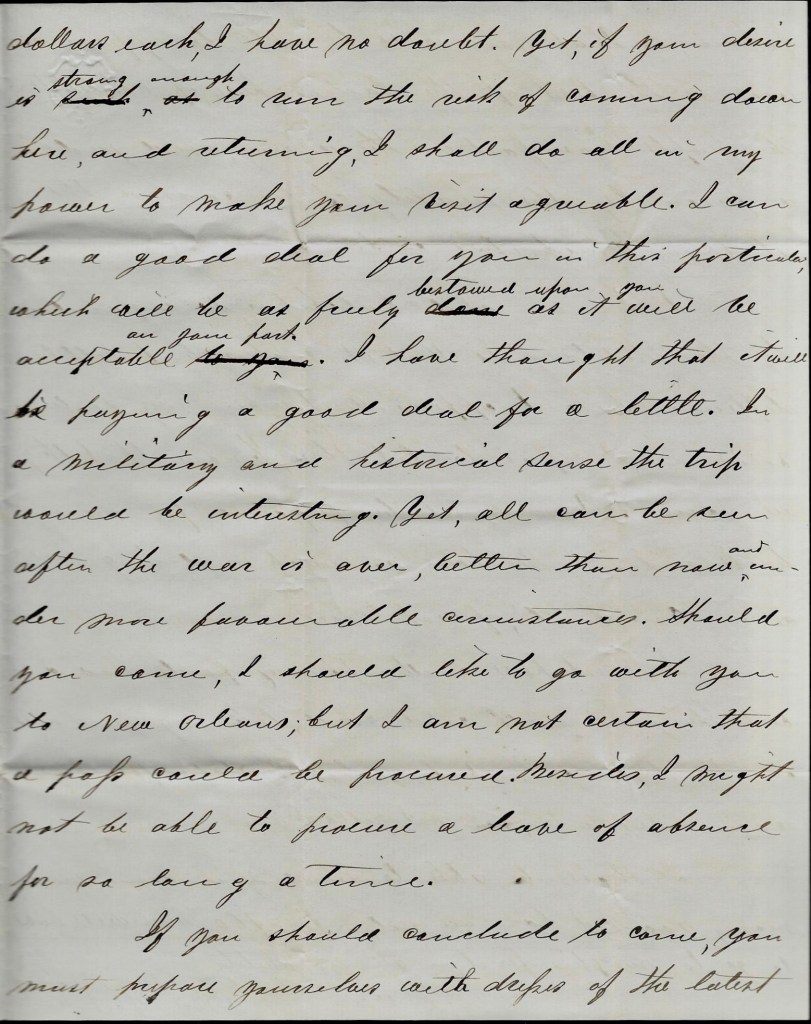 dollars each, I have no doubt. Yet, if your desire
strong enough
is such as to run the risk of coming down
here, and returning, I shall do all in my
power to make your visit agreeable. I can
do a good deal for you in this particular,
bestowed upon you
which will be as freely done as it will be
on your part.
acceptable to you. I have thought that it will
be paying a good deal for a little. In
a military and historical sense the trip
would be interesting. Yet, all can be seen
after the war is over, better than now and un-
der more favourable circumstances. Should
you come, I should like to go with you
to New Orleans; but I am not certain that
a pass could be procured. Besides, I might
not be able to procure a leave of absence
for so long a time.
If you should conclude to come, you
must prepare yourselves with dresses of the latest